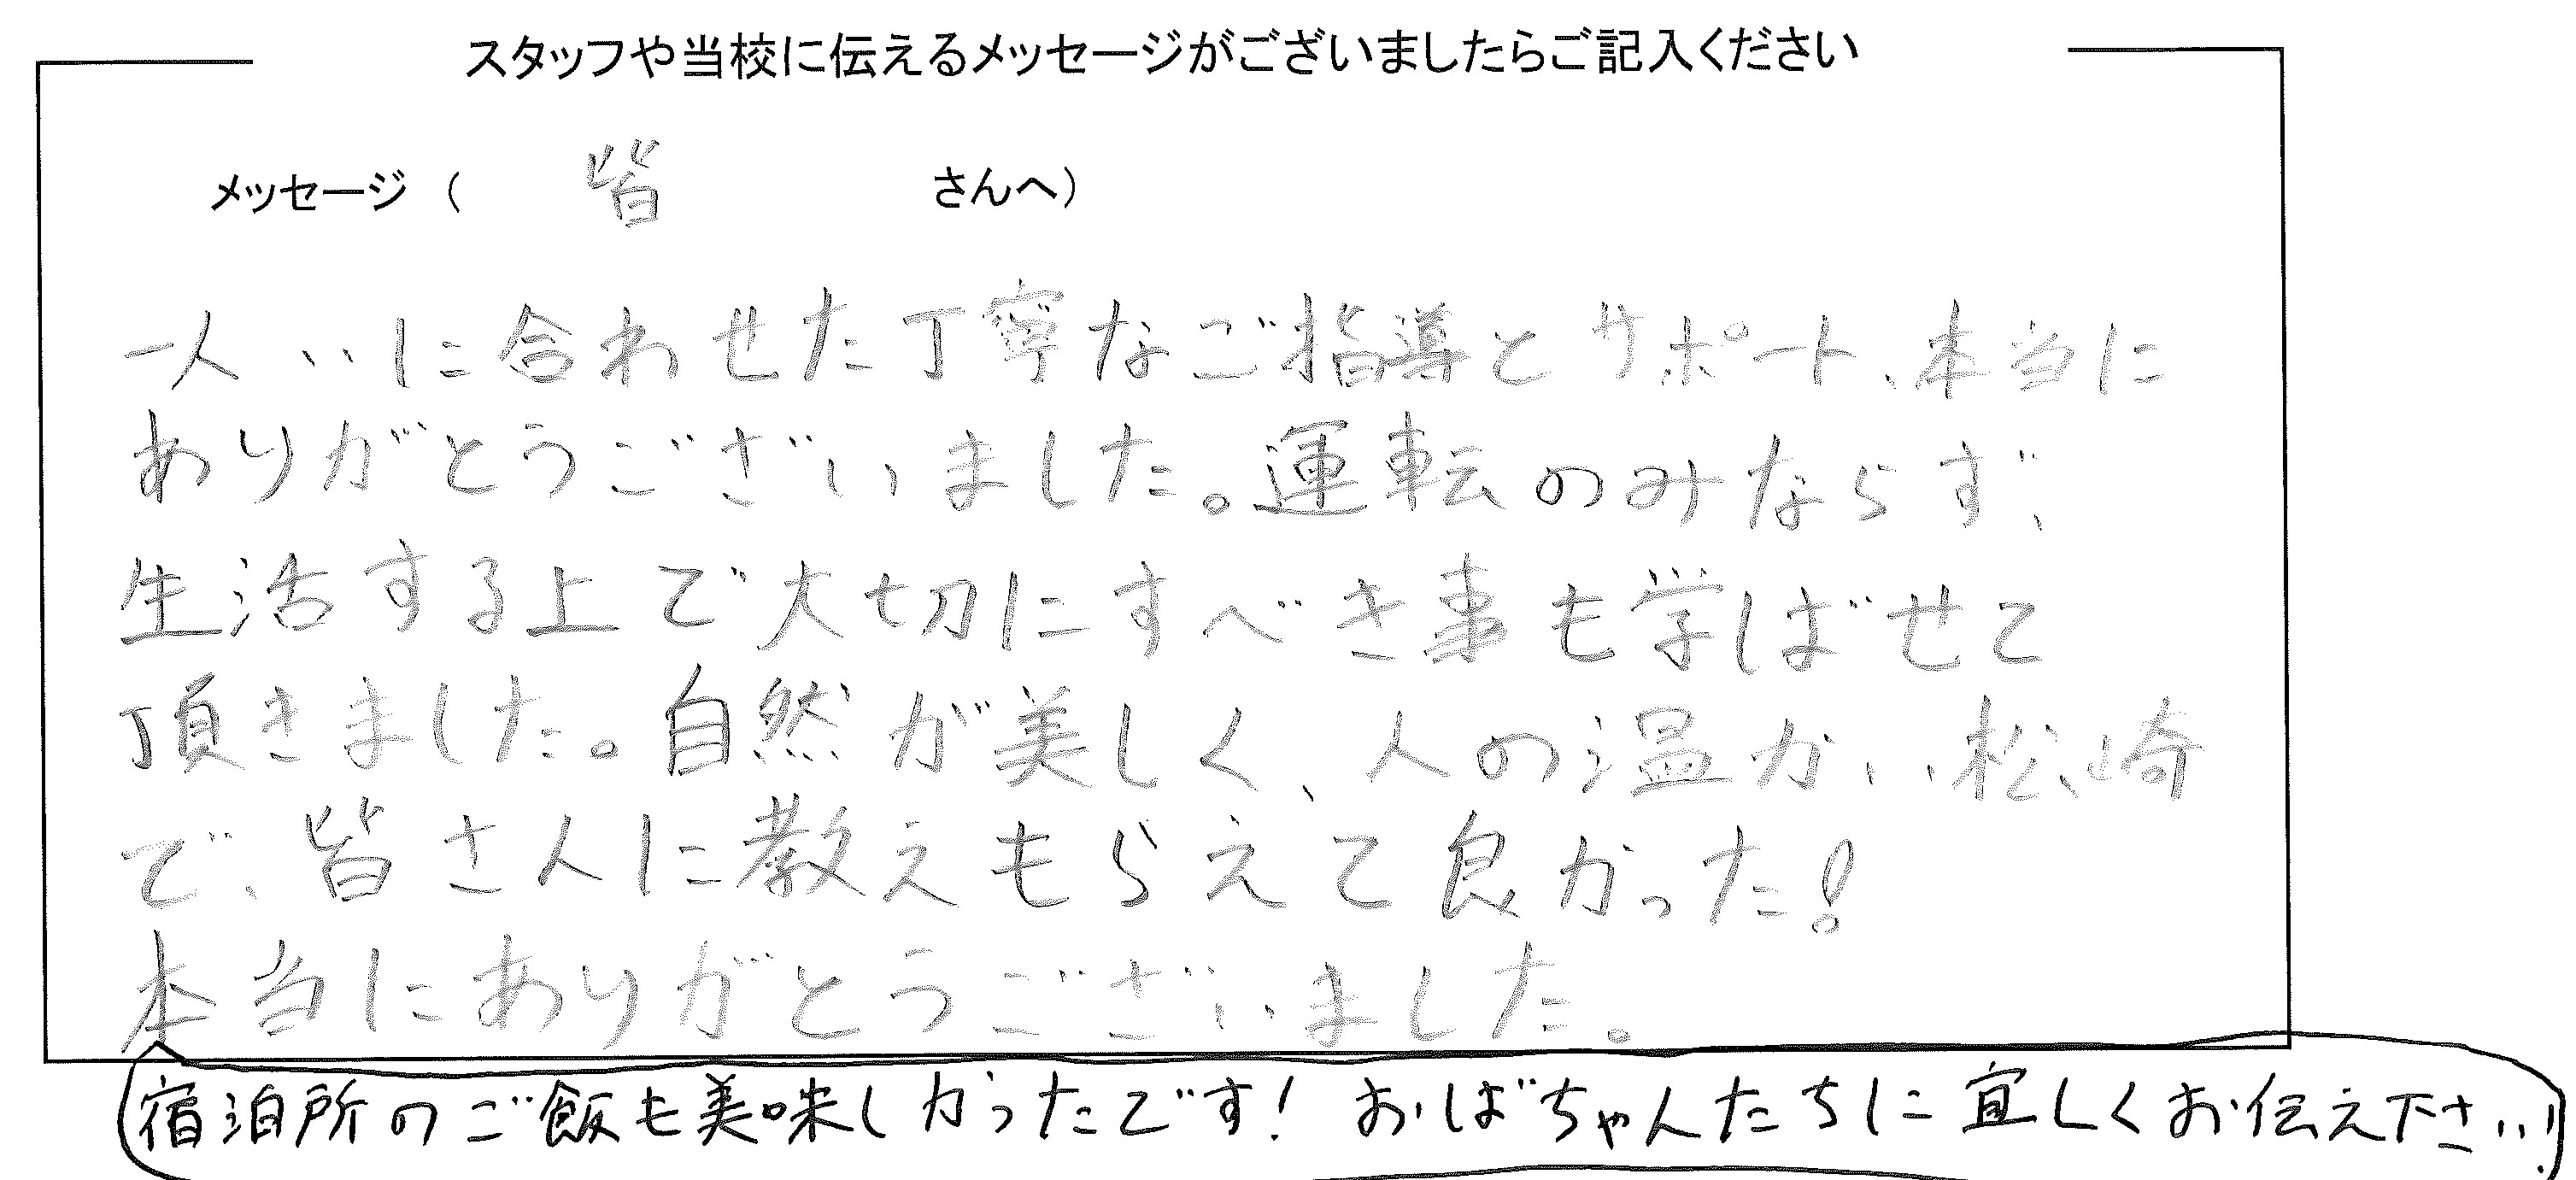 スタッフや当校に伝えるメッセージがございましたらご記入ください
メッセージ（ 皆 さんへ）
一人々に合わせた丁寧なご指導とサポート、本当に
ありがとうございました。運転のみならず、
生活する上で大切にすべき事も学ばせて
頂きました。自然が美しく、人の温かい松崎
で、皆さんに教えもらえて良かった!
本当にありがとうございました。
宿泊所のご飯も美味しかったです! おばちゃんたちに宜しくお伝え下さい!